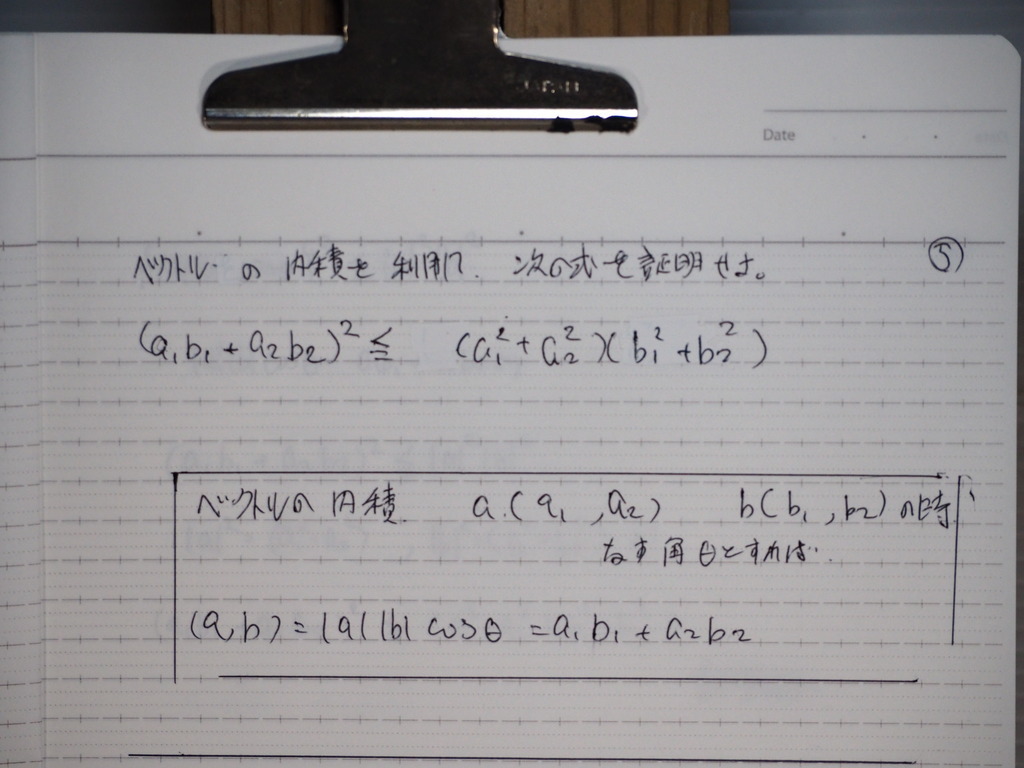 Date
ベクトルの内積を利用して、次の式を証明せよ。 ⑤
(a₁b₁+a₂b₂)² ≦ (a₁²+a₂²)(b₁²+b₂²)
ベクトルの内積 a.(a₁,a₂) b(b₁,b₂)の時、
なす角θとすれば..
(a,b)=|a||b|cosθ=a₁b₁+a₂b₂